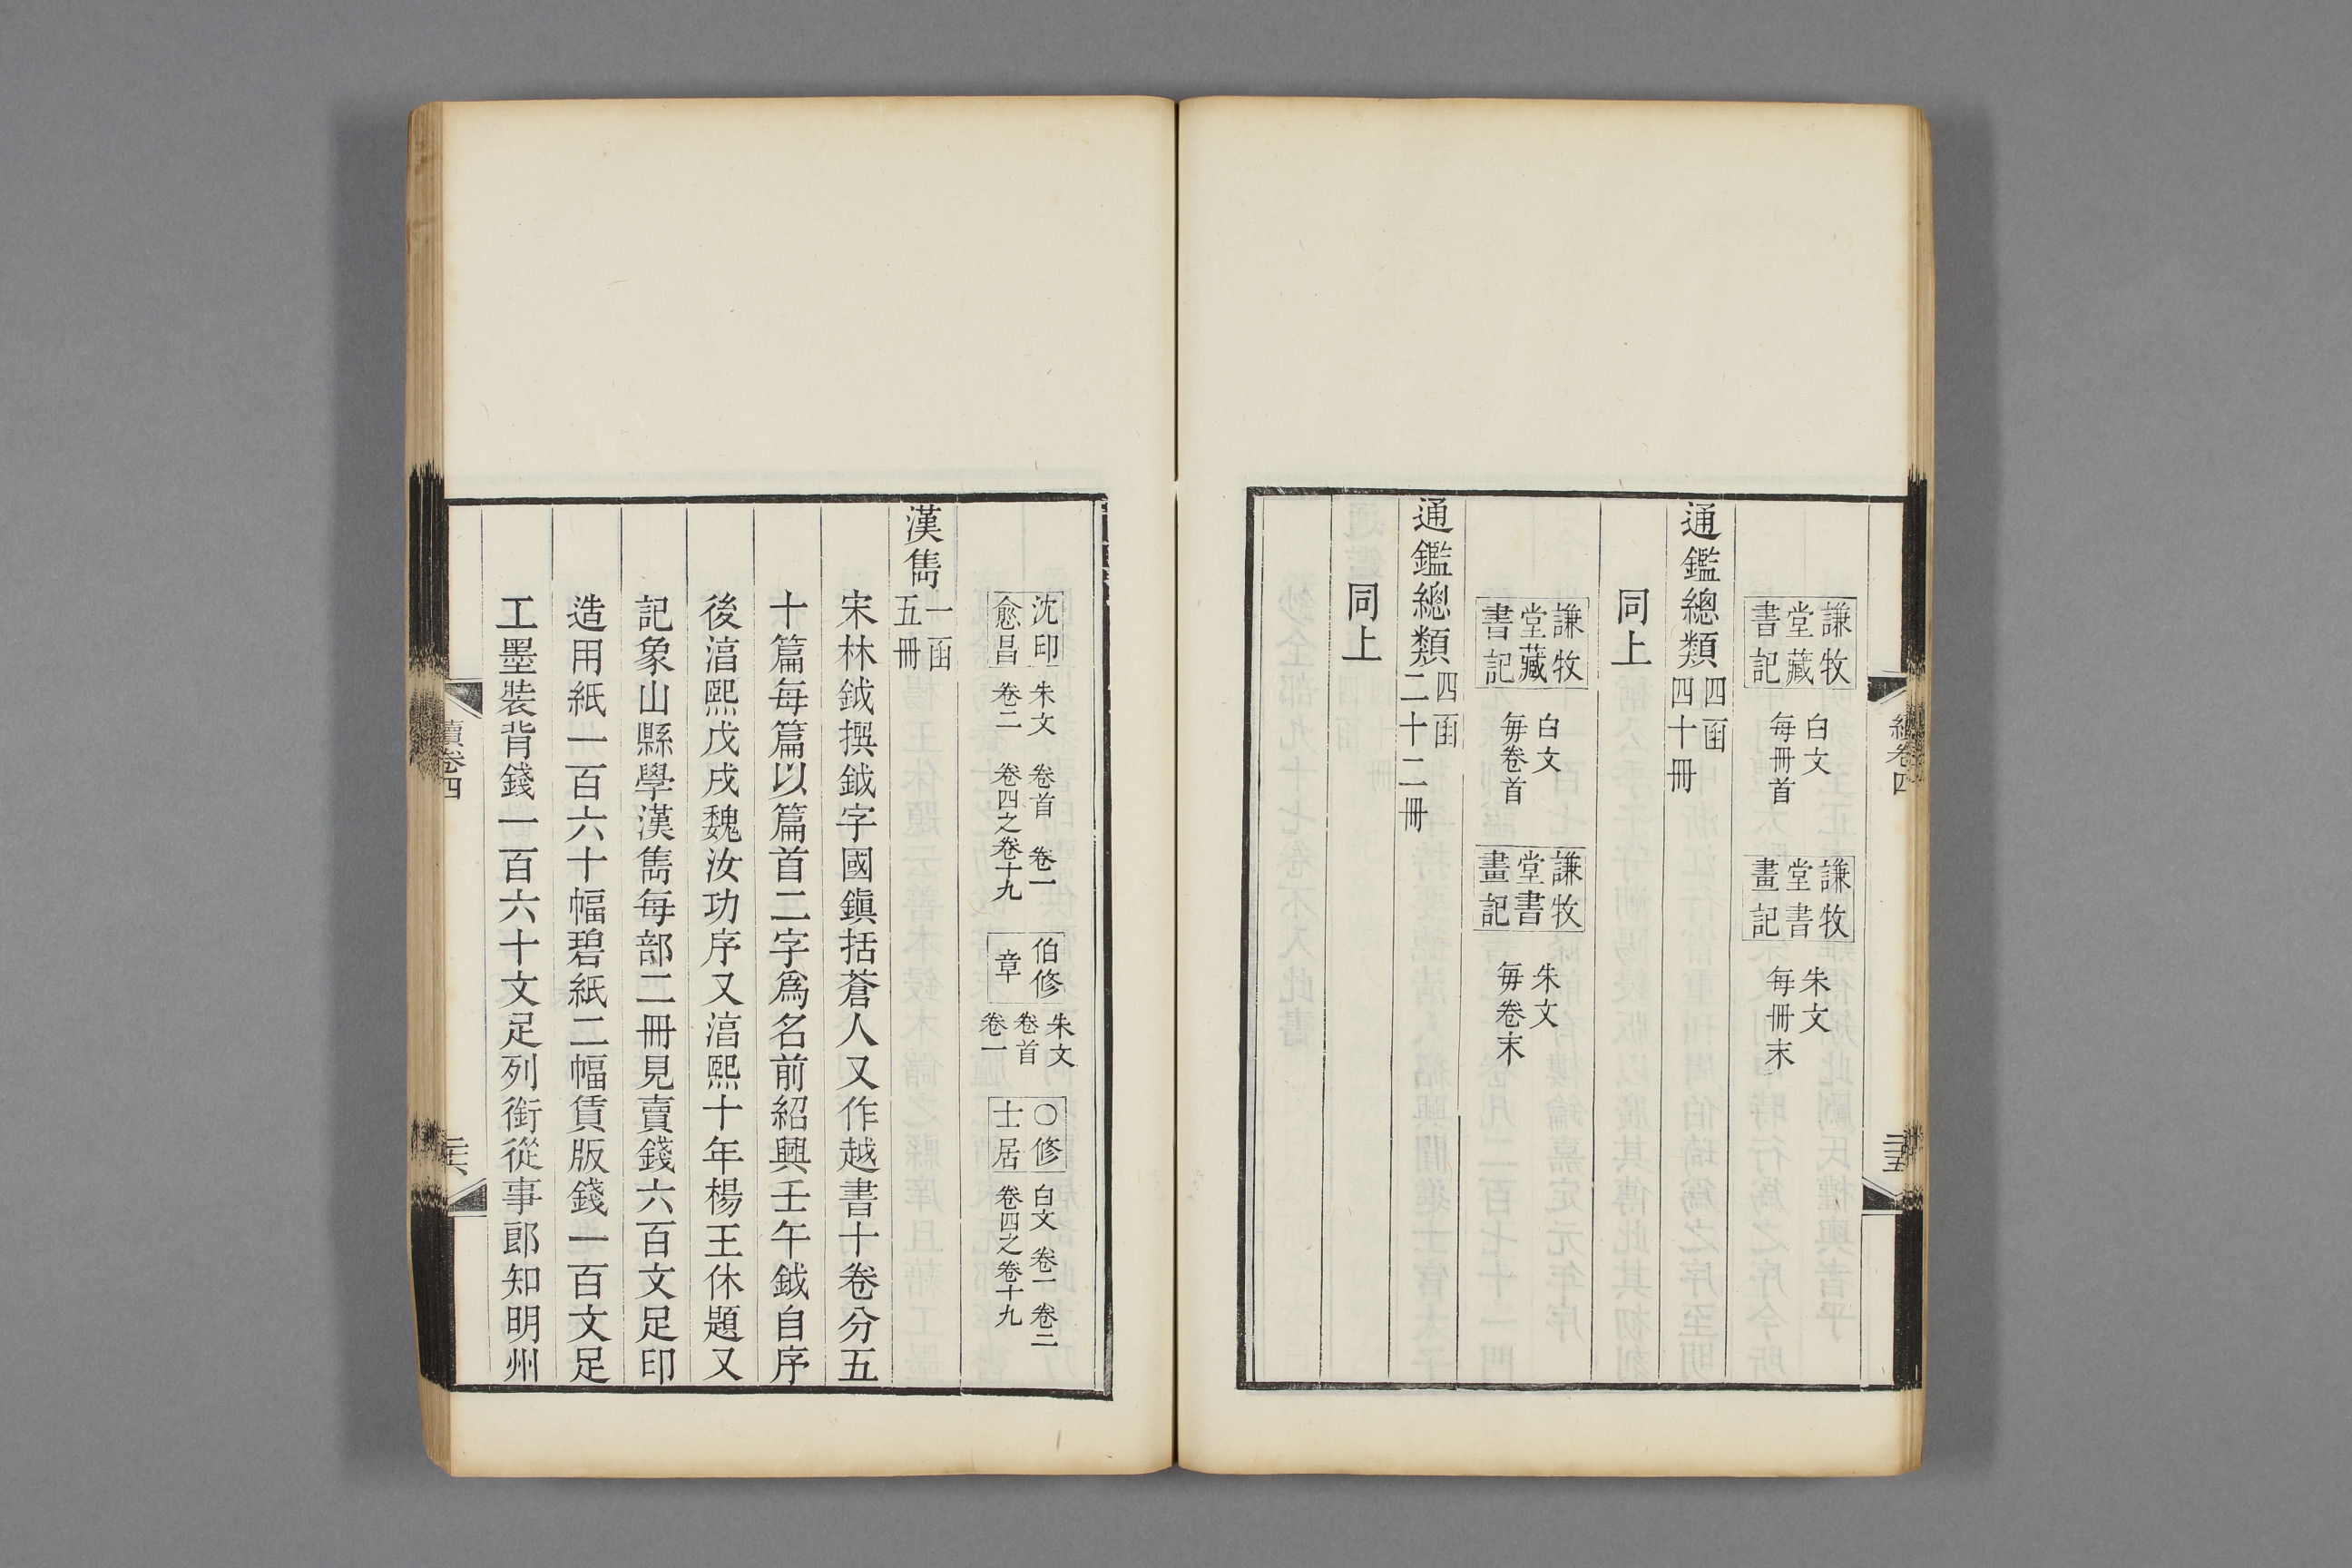 謙牧堂藏書記 白文 每冊首 謙牧堂書畫記 朱文 每冊末
通鑑總類 四函四十冊
同上
謙牧堂藏書記 白文 每卷首 謙牧堂書畫記 朱文 每卷末
通鑑總類 四函二十二冊
同上
沈印愈昌 朱文 卷首 卷一 卷二 卷四之卷十九 伯修章 朱文 卷首 卷一 ○修士居 白文 卷一 卷二 卷四之卷十九
漢雋 一函五冊
宋林鉞撰鉞字國鎭括蒼人又作越書十卷分五
十篇每篇以篇首二字爲名前紹興壬午鉞自序
後湻熙戊戌魏汝功序又湻熙十年楊王休題又
記象山縣學漢雋每部二冊見賣錢六百文足印
造用紙一百六十幅碧紙二幅賃版錢一百文足
工墨裝背錢一百六十文足列銜從事郎知明州
續卷四